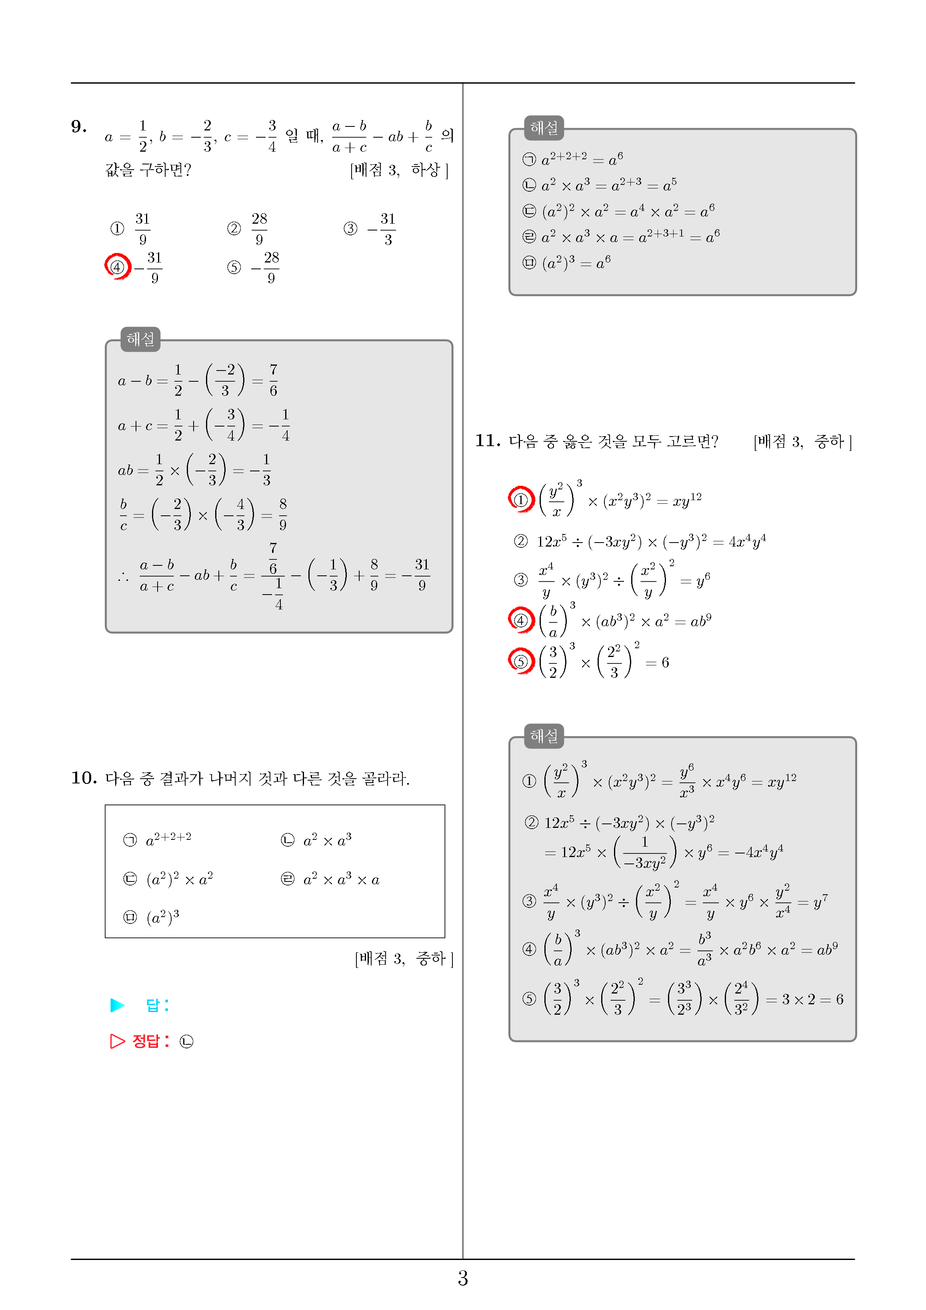 9. a = 1/2, b = −2/3, c = −3/4 일 때, (a − b)/(a + c) − ab + b/c 의
값을 구하면? [배점 3, 하상]
① 31/9 ② 28/9 ③ −31/3
④ −31/9 ⑤ −28/9
해설
a − b = 1/2 − (−2/3) = 7/6
a + c = 1/2 + (−3/4) = −1/4
ab = 1/2 × (−2/3) = −1/3
b/c = (−2/3) × (−4/3) = 8/9
∴ (a − b)/(a + c) − ab + b/c = (7/6)/(−1/4) − (−1/3) + 8/9 = −31/9
10. 다음 중 결과가 나머지 것과 다른 것을 골라라.
㉠ a^(2+2+2) ㉡ a² × a³
㉢ (a²)² × a² ㉣ a² × a³ × a
㉤ (a²)³
[배점 3, 중하]
▶ 답 :
▷ 정답 : ㉡
해설
㉠ a^(2+2+2) = a⁶
㉡ a² × a³ = a^(2+3) = a⁵
㉢ (a²)² × a² = a⁴ × a² = a⁶
㉣ a² × a³ × a = a^(2+3+1) = a⁶
㉤ (a²)³ = a⁶
11. 다음 중 옳은 것을 모두 고르면? [배점 3, 중하]
① (y²/x)³ × (x²y³)² = xy¹²
② 12x⁵ ÷ (−3xy²) × (−y³)² = 4x⁴y⁴
③ x⁴/y × (y³)² ÷ (x²/y)² = y⁶
④ (b/a)³ × (ab³)² × a² = ab⁹
⑤ (3/2)³ × (2²/3)² = 6
해설
① (y²/x)³ × (x²y³)² = y⁶/x³ × x⁴y⁶ = xy¹²
② 12x⁵ ÷ (−3xy²) × (−y³)²
= 12x⁵ × (1/(−3xy²)) × y⁶ = −4x⁴y⁴
③ x⁴/y × (y³)² ÷ (x²/y)² = x⁴/y × y⁶ × y²/x⁴ = y⁷
④ (b/a)³ × (ab³)² × a² = b³/a³ × a²b⁶ × a² = ab⁹
⑤ (3/2)³ × (2²/3)² = (3³/2³) × (2⁴/3²) = 3 × 2 = 6
3